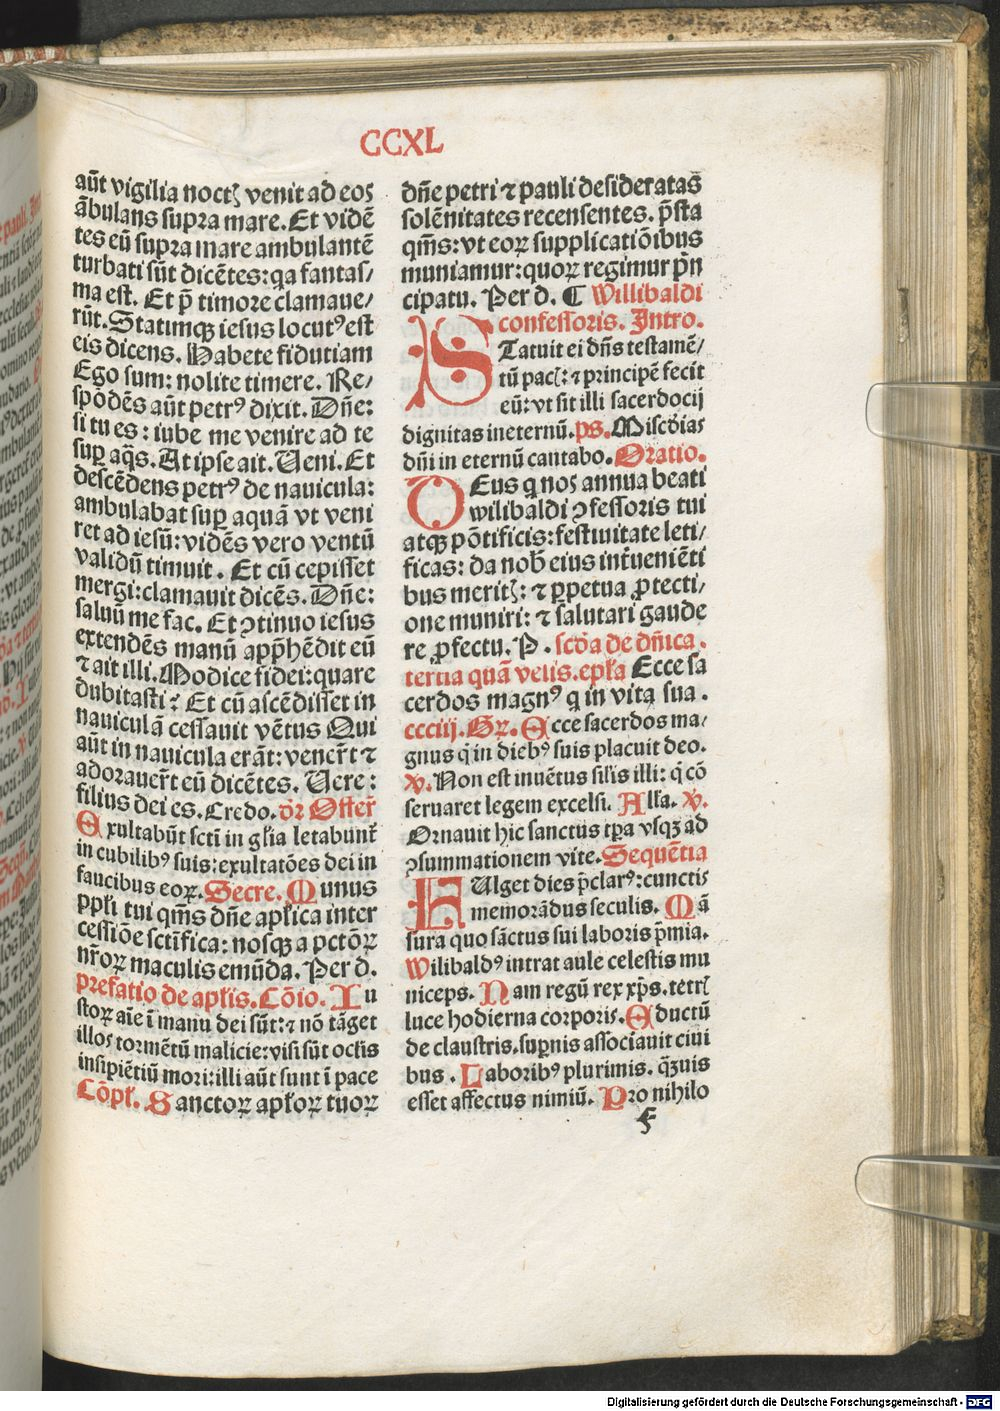 CCXL
aūt vigilia noctꝭ venit ad eos
ābulans supra mare. Et vidē
tes eū supra mare ambulantē
turbati sūt dicētes: qa fantas/
ma est. Et p̄ timore clamaue/
rūt. Statimqꝫ iesus locutꝰ est
eis dicens. Habete fidutiam
Ego sum: nolite timere. Re/
spōdēs aūt petrꝰ dixit. Dn̄e:
si tu es: iube me venire ad te
suꝑ aq̄s. At ipse ait. Ueni. Et
descēdens petrꝰ de nauicula:
ambulabat suꝑ aquā vt veni
ret ad iesū: vidēs vero ventū
validū timuit. Et cū cepisset
mergi: clamauit dicēs. Dn̄e:
saluū me fac. Et ꝯtinuo iesus
extendēs manū app̄hēdit eū
⁊ ait illi. Modice fidei: quare
dubitasti? Et cū ascēdisset in
nauiculā cessauit vētus Qui
aūt in nauicula erāt: venerūt ⁊
adorauer̄t eū dicētes. Uere:
filius dei es. Credo. ōr Offer̄
Exultabūt scti in gl̄ia letabunt̄
in cubilibꝰ suis: exultatōes dei in
faucibus eoꝝ. Secre. Munus
pp̄li tui qm̄s dn̄e apl̄ica inter
cessiōe sctīfica: nosqꝫ a pctōꝝ
nr̄oꝝ maculis emūda. Per d.
prefatio de apl̄is. Cōio. Iu
stoꝝ aīe ī manu dei sūt: ⁊ nō tāget
illos tormētū malicie: visi sūt ocl̄is
insipiētiū mori: illi aūt sunt ī pace
Cōpl̄. Sanctoꝝ apl̄oꝝ tuoꝝ
dn̄e petri ⁊ pauli desideratas
solēnitates recensentes. p̄sta
qm̄s: vt eoꝝ supplicatiōibus
muniamur: quoꝝ regimur p̄n
cipatu. Per d. ¶ Willibaldi
confessoris. Intro.
STatuit ei dn̄s testamē/
tū pacꝭ: ⁊ principē fecit
eū: vt sit illi sacerdocij
dignitas ineternū. ps. Miscd̄ias
dn̄i in eternū cantabo. Oratio.
DEus q nos annua beati
wilibaldi ꝯfessoris tui
atqꝫ pōtificis: festiuitate leti/
ficas: da nob̄ eius intueniēti
bus meritꝭ: ⁊ ꝑpetua ꝓtecti/
one muniri: ⁊ salutari gaude
re ꝓfectu. P. scd̄a de dn̄ica.
tertia quā velis. epl̄a Ecce sa
cerdos magnꝰ q in vita sua.
ccciij. Gꝝ. Ecce sacerdos ma/
gnus q̇ in diebꝰ suis placuit deo.
v. Non est inuētus sil̄is illi: q̇ cō
seruaret legem excelsi. All̄a. v.
Ornauit hic sanctus tꝑa vsqꝫ ad
ꝯsummationem vite. Sequētia
FUlget dies p̄clarꝰ: cunctis
memorādus seculis. Mā
sura quo sāctus sui laboris p̄mia.
Wilibaldꝰ intrat aule celestis mu
niceps. Nam regū rex xp̄s. tetrꝭ
luce hodierna corporis. Eductū
de claustris. suꝑnis associauit ciui
bus. Laboribꝰ plurimis. qꝫuis
esset affectus nimiū. Pro nihilo
Digitalisierung gefördert durch die Deutsche Forschungsgemeinschaft - DFG